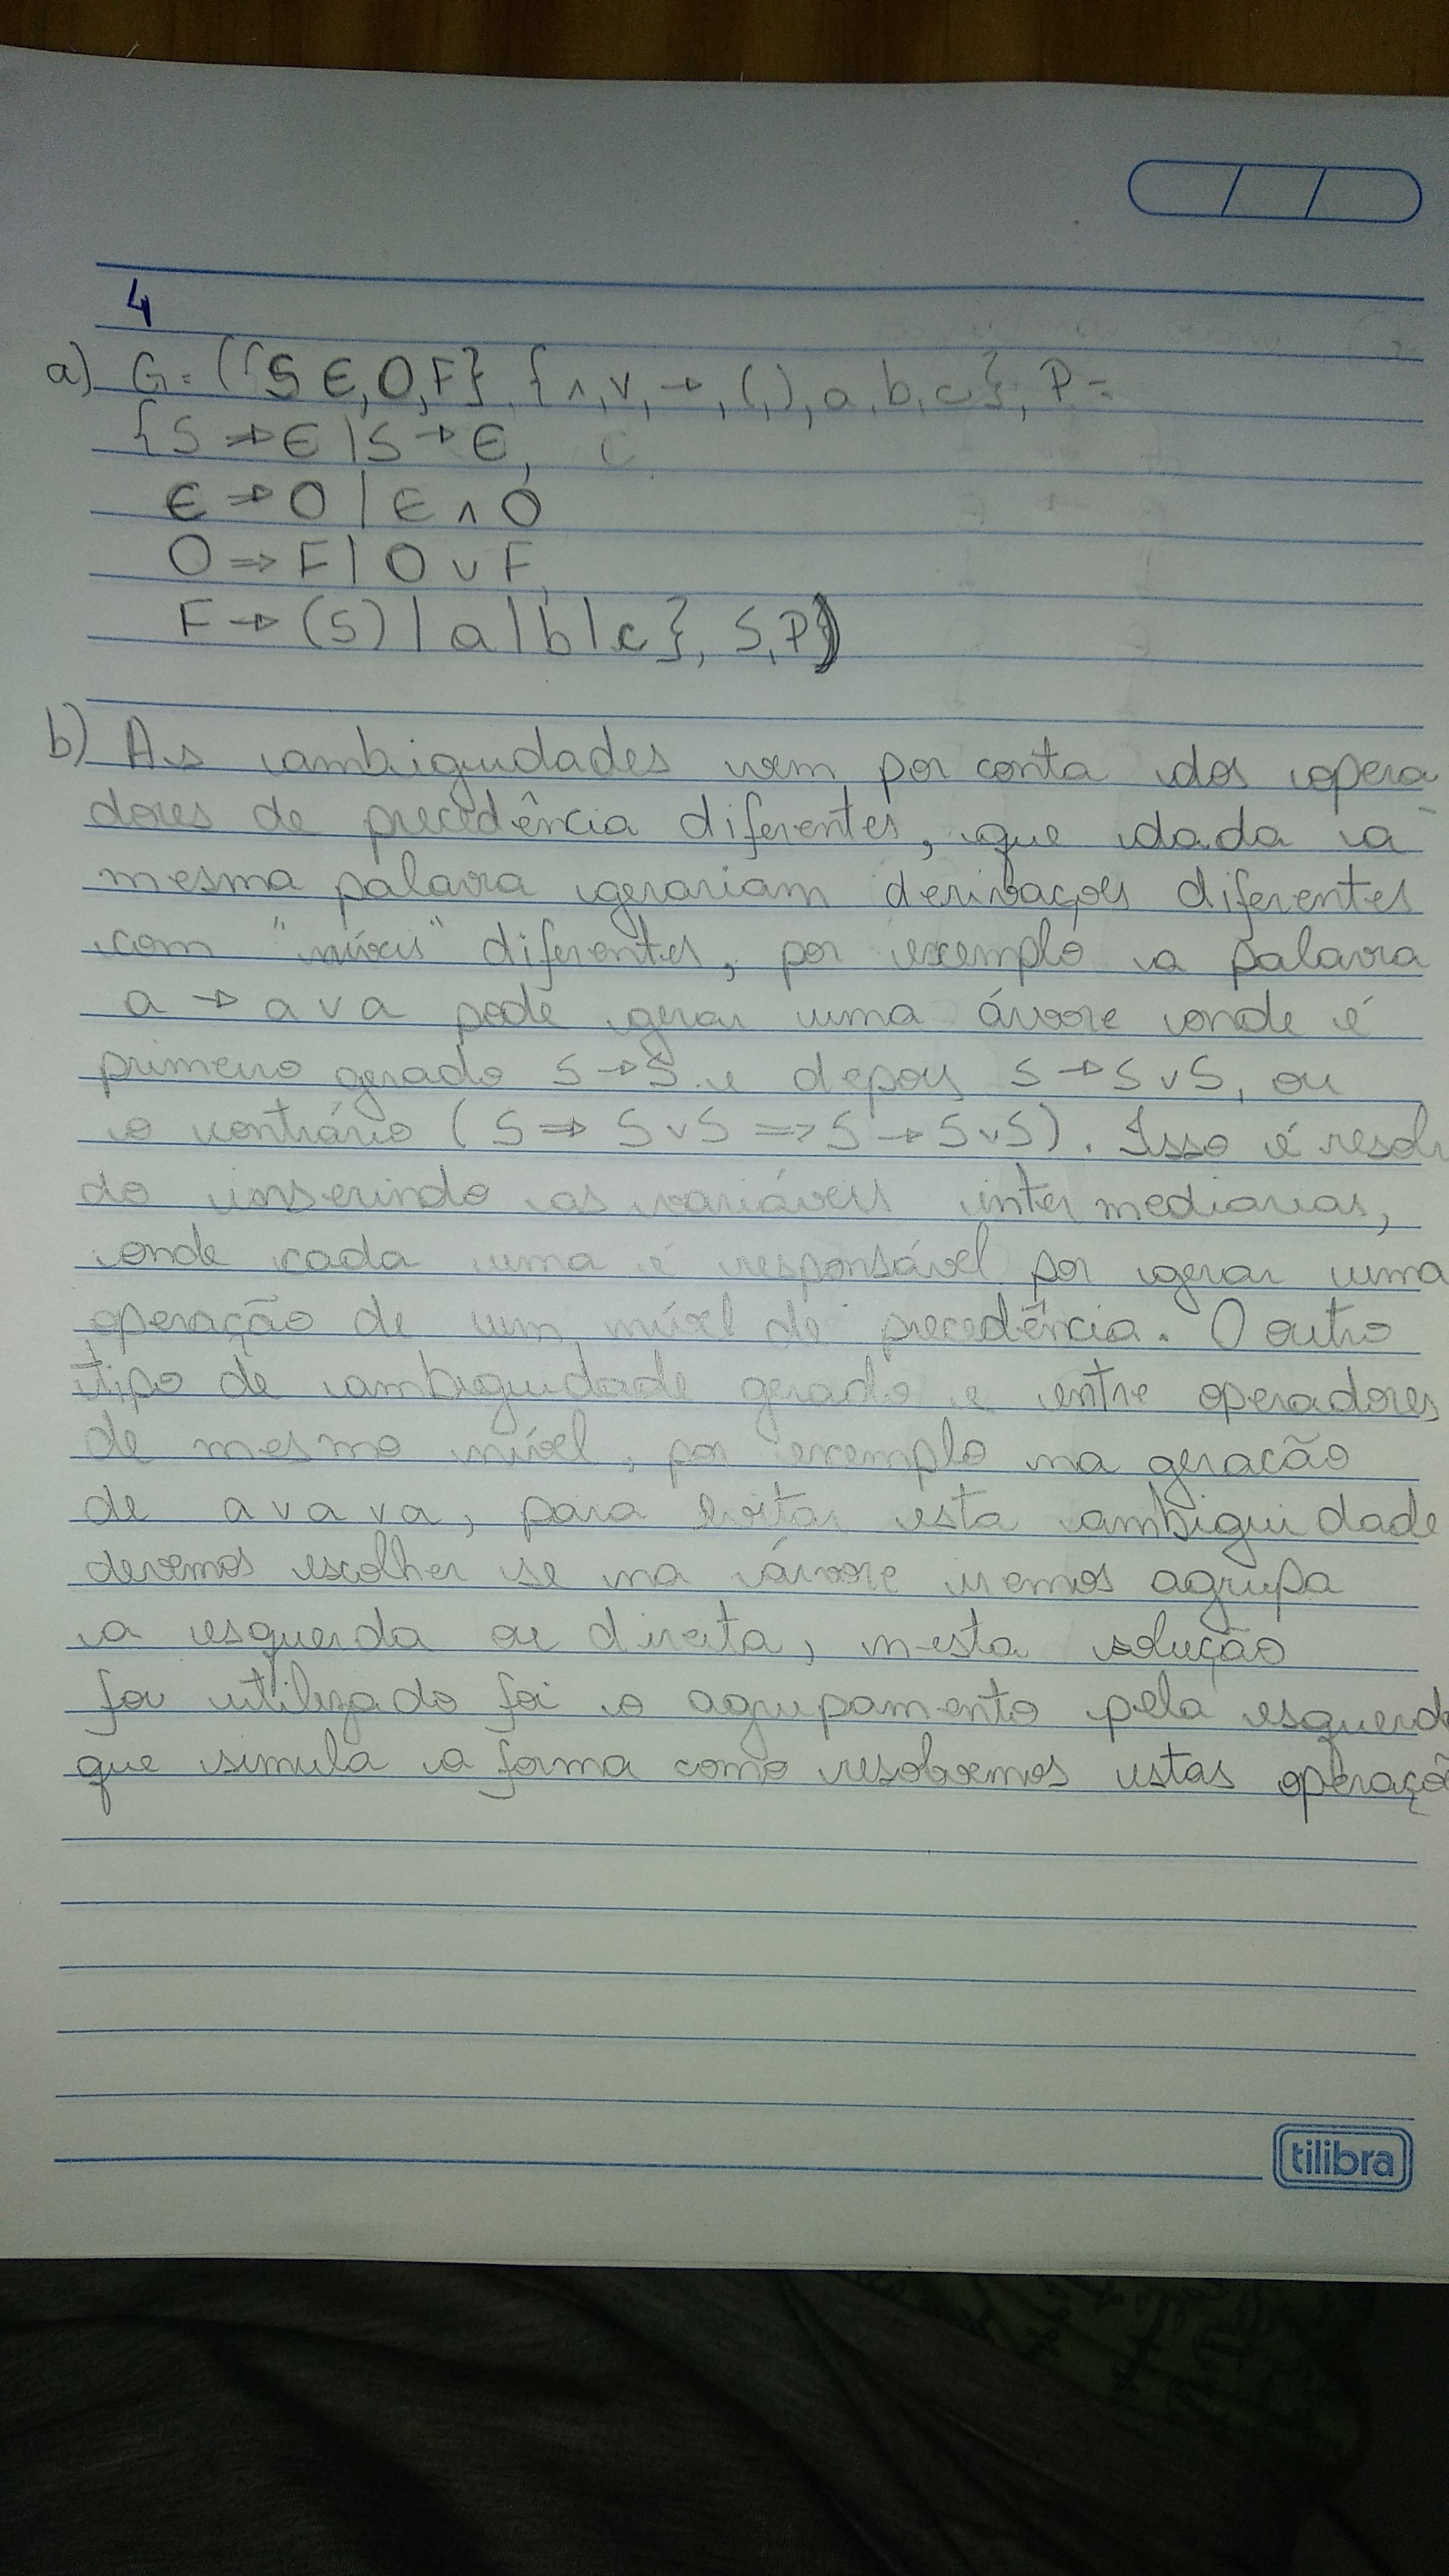 4
a) G = ({S E, O, F}, {∧, ∨, →, (, ), a, b, c}, P =
{S ⇒ E | S → E,
E ⇒ O | E ∧ O
O ⇒ F | O ∨ F,
F → (S) | a | b | c}, S, P)
b) As ambiguidades vem por conta dos opera-
dores de precedência diferentes, que dada a
mesma palavra gerariam derivações diferentes
com "níveis" diferentes, por exemplo a palavra
a → a ∨ a pode gerar uma árvore onde é
primeiro gerado S → S e depois S → S ∨ S, ou
o contrário (S ⇒ S ∨ S => S → S ∨ S). Isso é resolvi
do inserindo as variáveis intermediarias,
onde cada uma é responsável por gerar uma
operação de um nível de precedência. O outro
tipo de ambiguidade gerado e entre operadores
de mesmo nível, por exemplo na geracão
de a ∨ a ∨ a, para evitar esta ambiguidade
devemos escolher se na árvore iremos agrupa
a esquerda ou direita, nesta solução
foi utilizado foi o agrupamento pela esquerda
que simula a forma como resolvemos estas operaçõ
tilibra